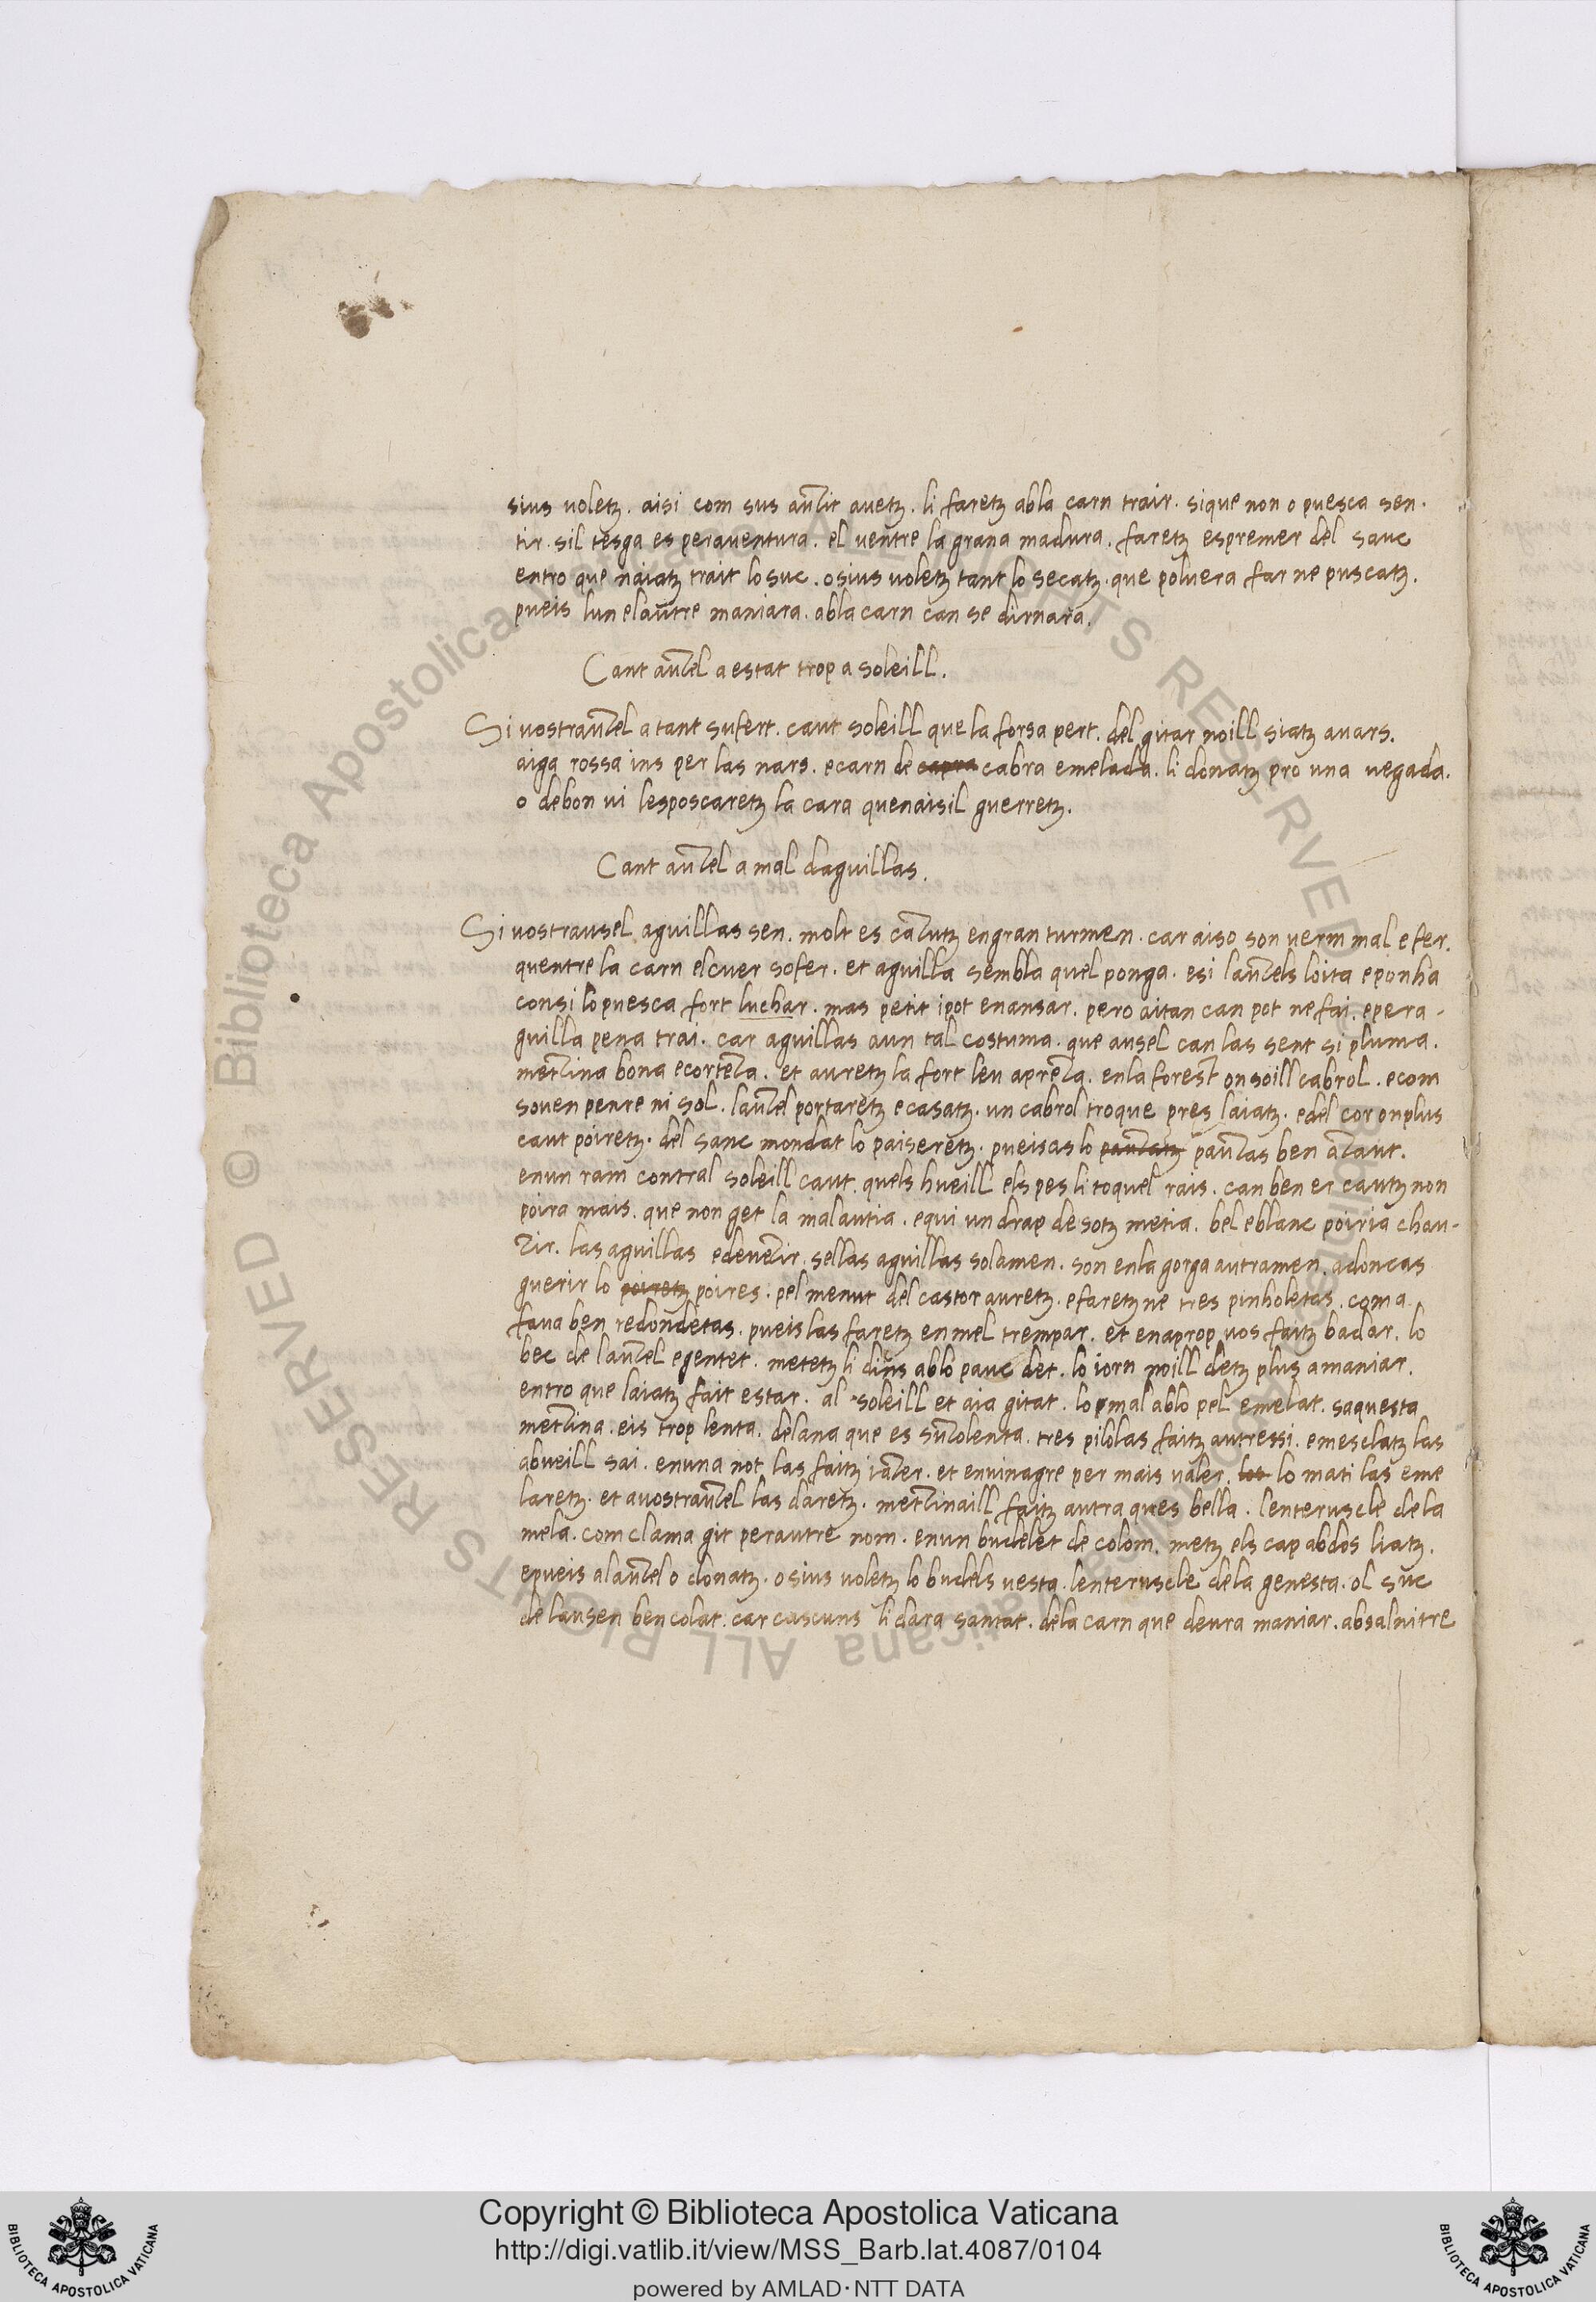 sius uoletz. aisi com sus auzit auetz. li faretz abla carn trair. sique non o puesca sen.
tir. sil tesga es perauentura. el uentre la grana madura. faretz espremer del sauc
entro que naiatz trait lo suc. osius uoletz tant lo secatz. que poluera far ne puscatz.
pueis lun elautre maniara. abla carn can se dirnara.
Cant auzel a estat trop a soleill.
Si uostrauzel a tant sufert. caut soleill que la forsa pert. del gitar noill siatz auars.
aiga rossa ins per las nars. ecarn de capra cabra emelada. li donatz pro una uegada.
o debon ui lesposcaretz la cara quenaisil guerretz.
Cant auzel a mal daguillas.
Si uostrausel aguillas sen. molt es cazutz engran turmen. car aiso son uerm mal e fer.
quentre la carn elcuer sofer. et aguilla sembla quel ponga. esi lauzels loita eponha
consi lo puesca fort luchar. mas petit ipot enansar. pero aitan can pot ne fai. epera-
guilla pena trai. car aguillas aun tal costuma. que ausel can las sent si pluma.
metzina bona ecorteza. et auretz la fort leu apreza. enla forest on soill cabrol. ecom
souen penre ni sol. lauzel portaretz ecasatz. un cabrol troque pres laiatz. edel cor onplus
caut poiretz. del sanc mondat lo paiseretz. pueisas lo pauzatz pauzas ben azaut.
enun ram contral soleill caut. quels hueill els pes li toquel rais. can ben er cautz non
poira mais. que non get la malautia. equi un drap de sotz metia. bel eblanc poiria chau-
zir. las aguillas edeuezir. sellas aguillas solamen. son enla gorga autramen. adoncas
guerir lo poiretz poires. pel menut del castor auretz. efaretz ne tres pinholetas. com a
faua ben redondetas. pueis las faretz enmel trempar. et enaprop uos faitz badar. lo
bec de lauzel egentet. metetz li dins ablo pauc det. lo iorn noill detz plus amaniar.
entro que laiatz fait estar. al soleill et aia gitat. lo mal ablo pel emelat. saquesta
metzina. eis trop lenta. delana que es suzolenta. tres pilolas faitz autressi. emesclatz las
abueill sai. enuna not las faitz iazer. et enuinagre per mais ualer. las lo mati las eme
laretz. et auostrauzel las daretz. metzinaill faitz autra ques bella. lenteruscle de la
mela. com clama git perautre nom. enun budelet de colom. metz els cap abdos liatz.
epueis alauzel o donatz. osius uoletz lo budels uesta. lenteruscle dela genesta. ol suc
de lausen ben colat. car cascuns li dara santat. dela carn que deura maniar. absalnitre
Copyright © Biblioteca Apostolica Vaticana
http://digi.vatlib.it/view/MSS_Barb.lat.4087/0104
powered by AMLAD·NTT DATA